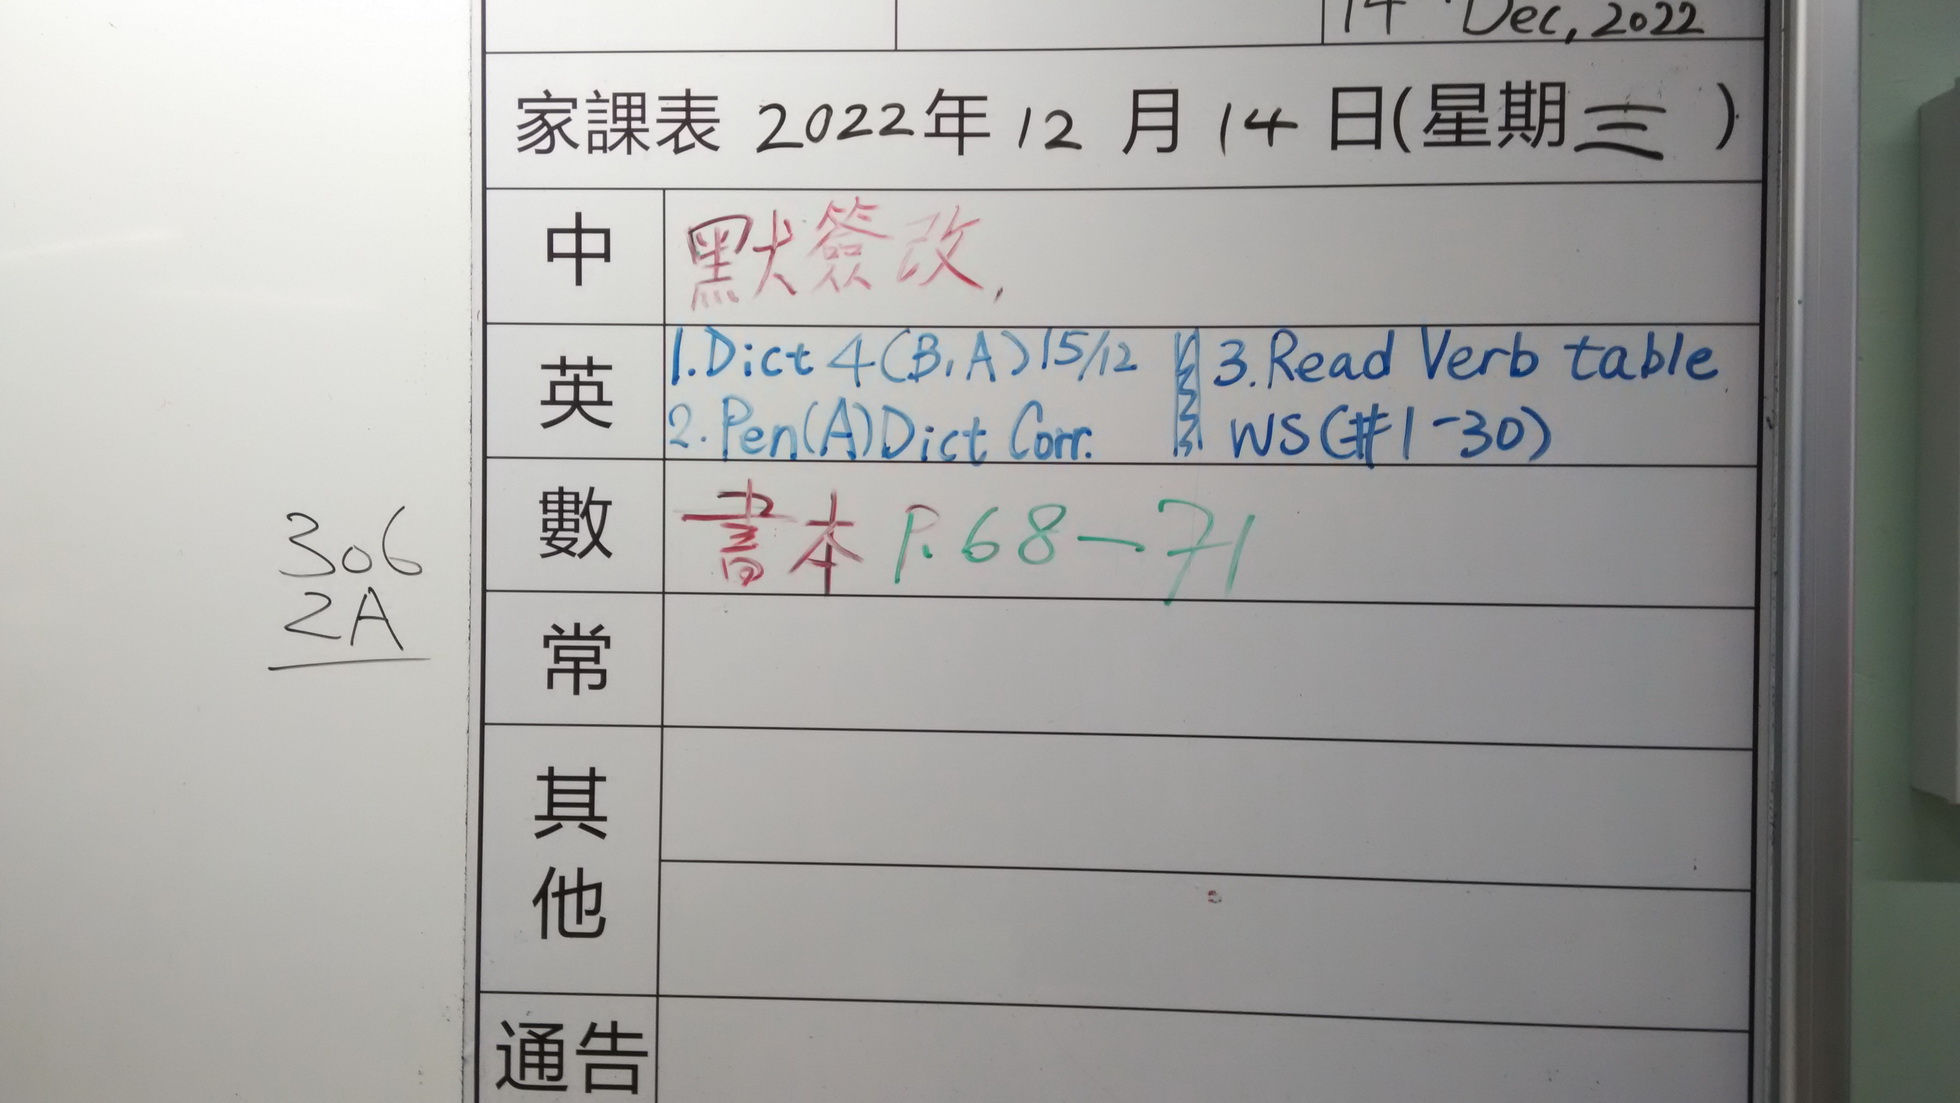 14 Dec, 2022
家課表 2022年 12 月 14 日(星期三)
中 默簽改,
英 1. Dict 4 (B, A) 15/12
2. Pen(A) Dict Corr.
3. Read Verb table
WS (#1-30)
數 書本 P. 68-71
常
其他
通告
306
2A